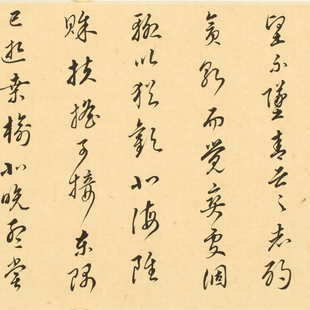 望不墜青雲之志酌
貪泉而覺爽處涸
轍以猶歡北海雖
賒扶搖可接東隅
已逝桑榆非晚孟嘗